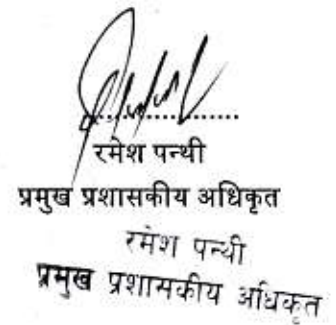 रमेश पन्थी
प्रमुख प्रशासकीय अधिकृत
रमेश पन्थी
प्रमुख प्रशासकीय अधिकृत